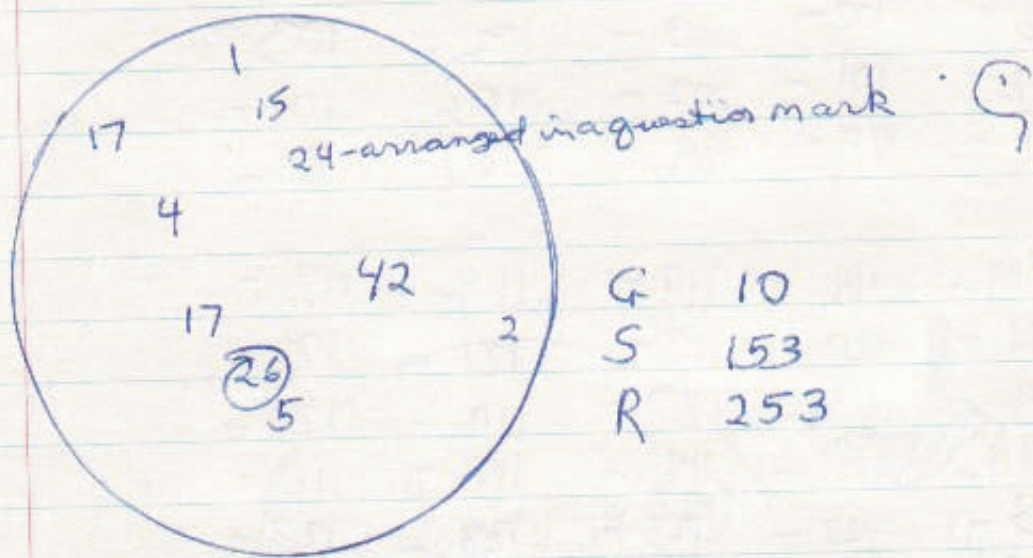 1
15
17
24-arranged in a question mark
4
42
17
2
26
5
G 10
S 153
R 253